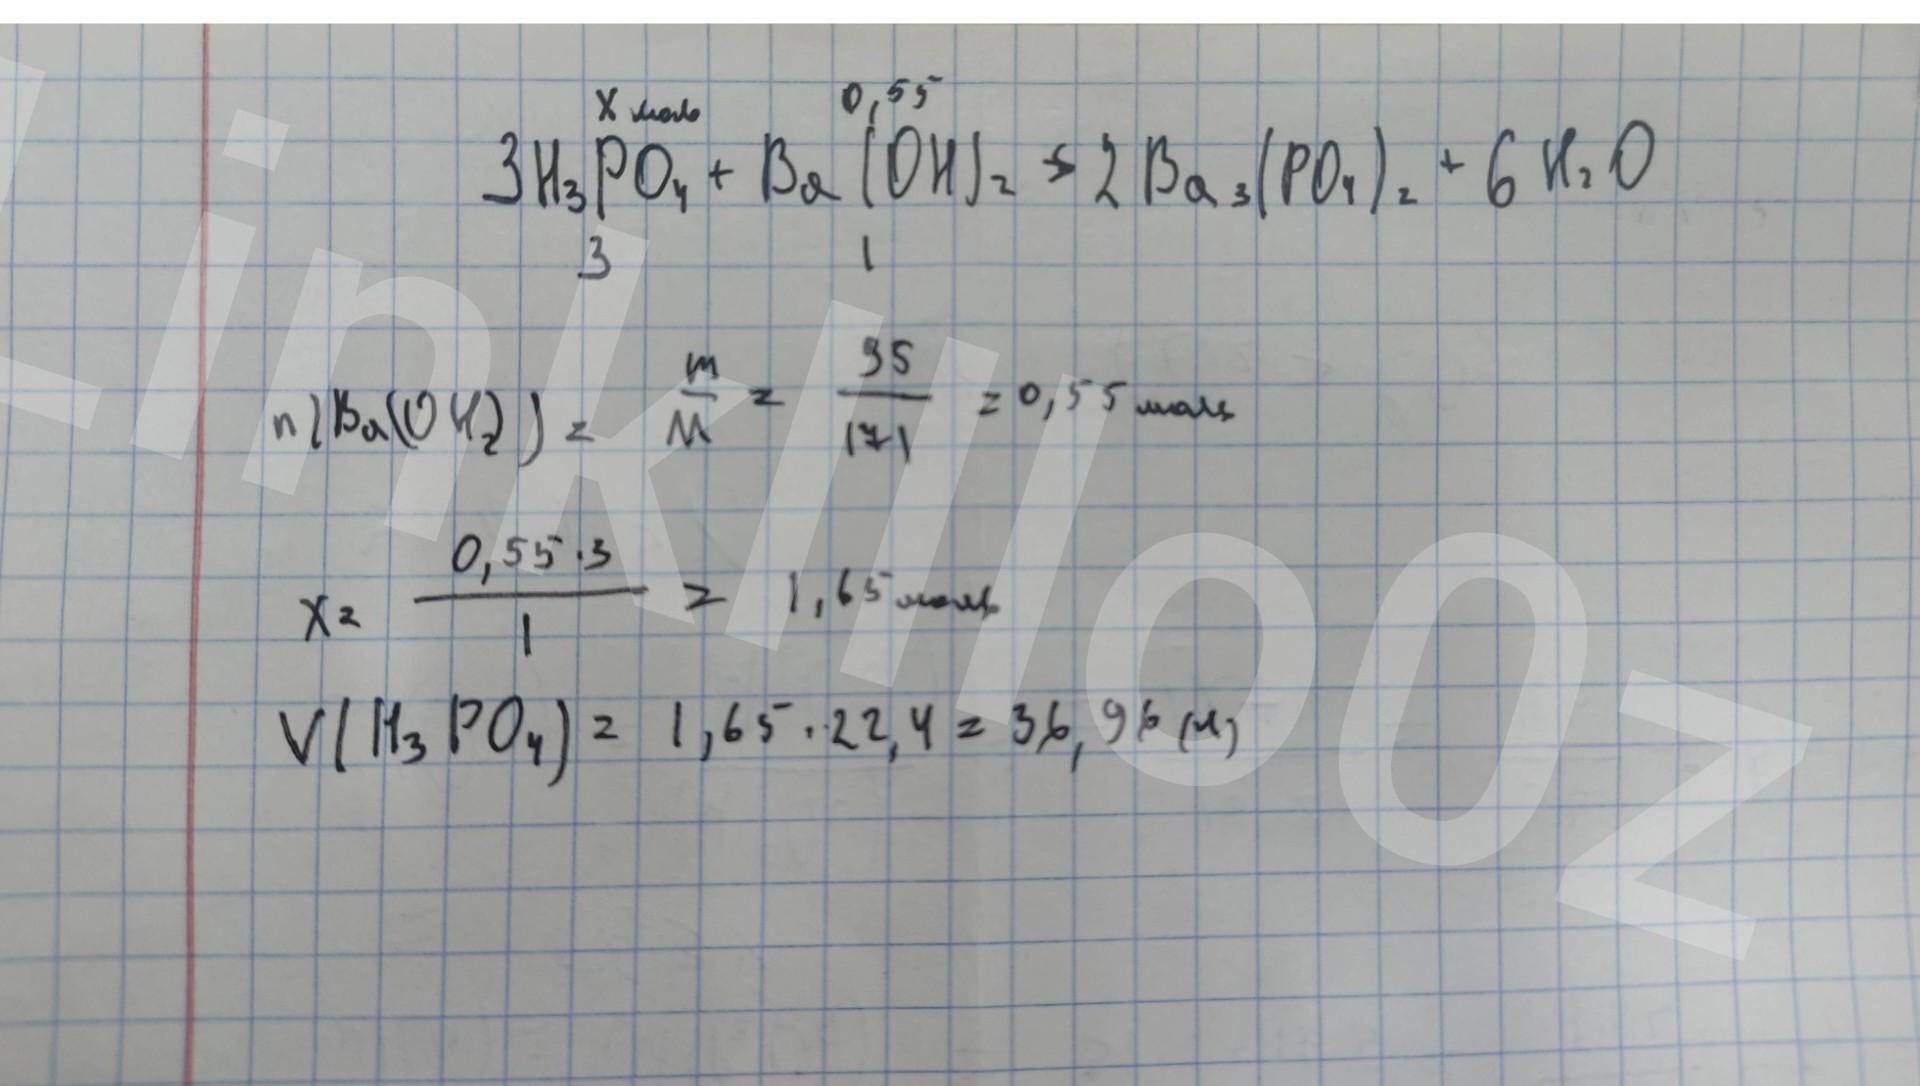 x моль 0,55
3H₃PO₄ + Ba(OH)₂ → 2Ba₃(PO₄)₂ + 6H₂O
3 1
n(Ba(OH₂) = m/M = 95/171 = 0,55 моль
x = 0,55·3/1 = 1,65 моль
V(H₃PO₄) = 1,65·22,4 = 36,96 (л)
Linkllooz